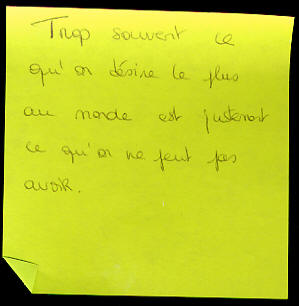 Trop souvent ce
qu'on désire le plus
au monde est justement
ce qu'on ne peut pas
avoir.